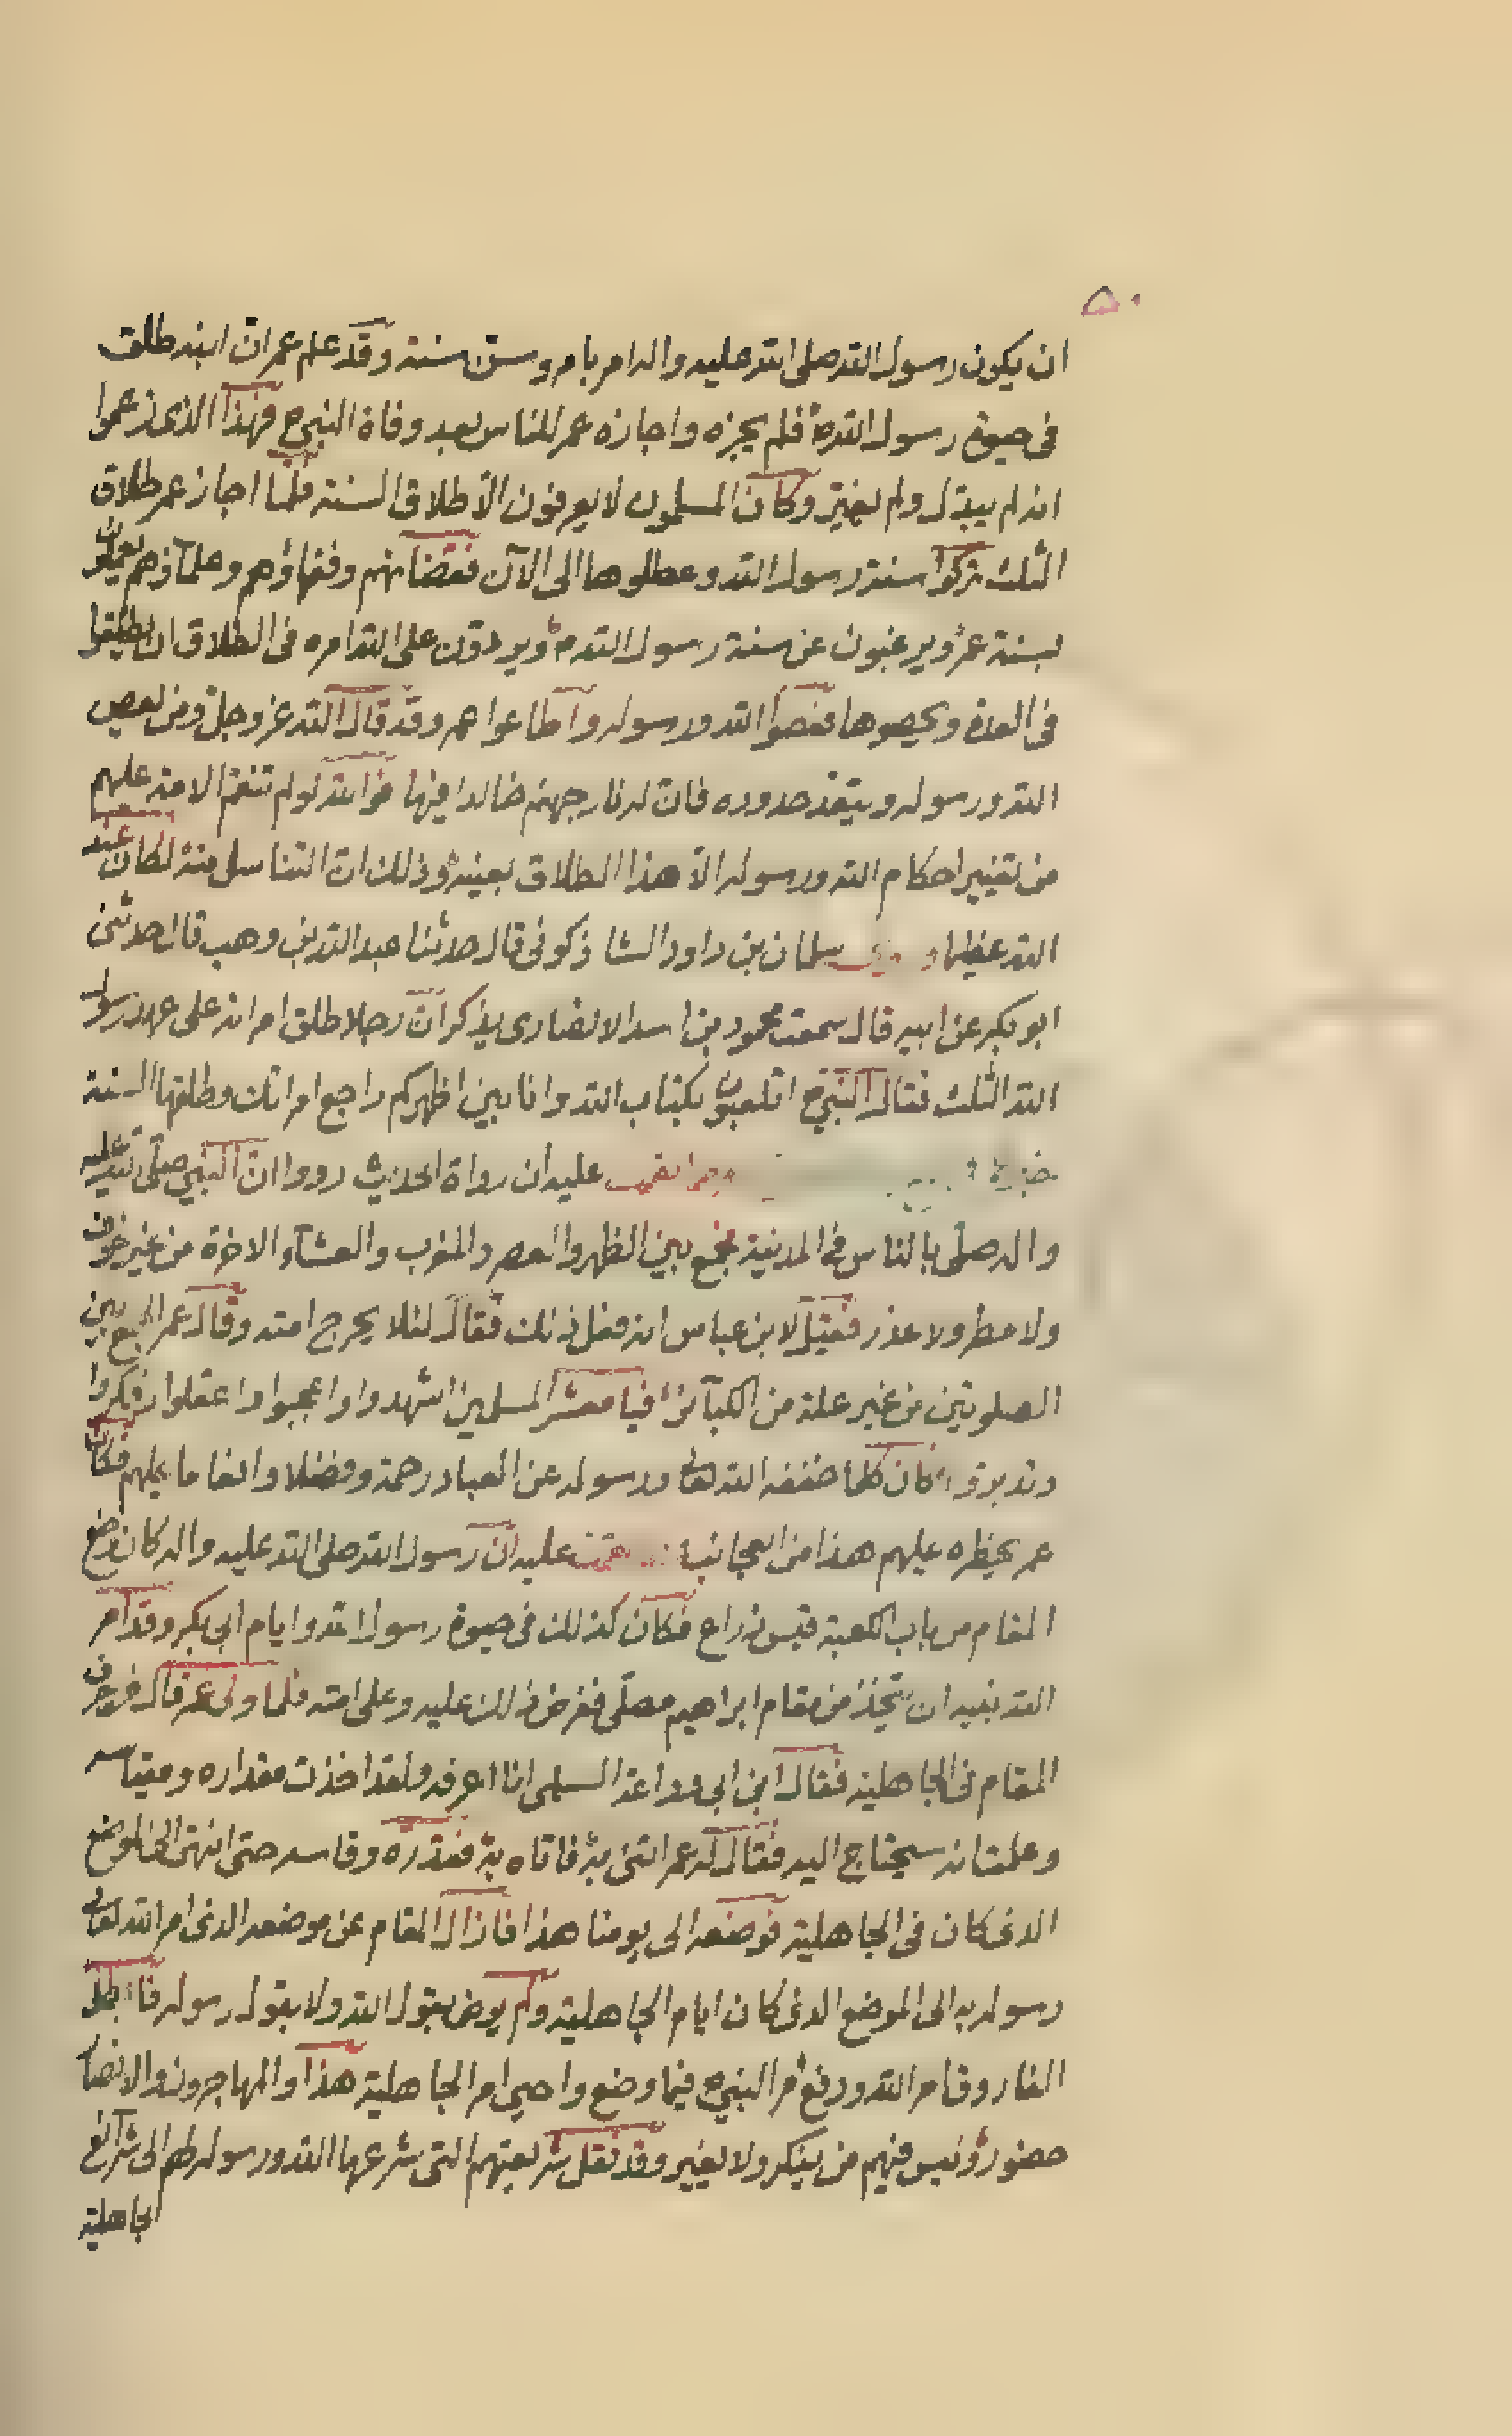 ٥٠
ان يكون رسول الله صلى الله عليه واله امر بامر وسن سنة وقد علم عمر ان ابنه طلق
فى حيوة رسول الله ص فلم يجزه واجازه عمر للناس بعد وفاة النبى ص فهذا الذى زعموا
انه لم يبدل ولم يغير وكان المسلمون لا يعرفون الا طلاق السنة فلما اجاز عمر طلاق
الثلث تركوا سنة رسول الله وعطلوها الى الآن فقضاتهم وفقهاؤهم وعلماؤهم يعملون
بسنة عمر ويرغبون عن سنة رسول الله ص ويردون على الله امره فى الطلاق ان يطلقوا
فى العدة ويحصوها فعصوا الله ورسوله واطاعوا عمر وقد قال الله عز وجل ومن يعص
الله ورسوله ويتعد حدوده فان له نار جهنم خالدا فيها فوالله لو لم تنقم الامة عليهم
من تغيير احكام الله ورسوله الا هذا الطلاق بعينه وذلك ان التناسل منه لكان عند
الله عظيما سلمان بن داود الشاذكونى قال حدثنا عبد الله بن وهب قال حدثنى
ابو بكر عن ابيه قال سمعت محمود بن اسد الانصارى يذكر ان رجلا طلق امراته على عهد رسول
الله الثلث فقال النبى ص اتلعبون بكتاب الله وانا بين اظهركم راجع امراتك وطلقها السنة
ومما نقمت عليه ان رواة الحديث رووا ان النبى صلى الله عليه
واله صلى بالناس فى المدينة فجمع بين الظهر والعصر والمغرب والعشاء الاخرة من غير خوف
ولا مطر ولا عذر فقيل لابن عباس انه فعل ذلك فقال لئلا يحرج امته وقال عمر الجمع بين
الصلوتين من غير علة من الكبائر فيا معشر المسلمين اشهدوا واعجبوا واعقلوا وفكروا
وتدبروا كان كلما خففه الله تعالى ورسوله عن العباد رحمة وفضلا وانعاما عليهم فكان
عمر يحظره عليهم هذا من العجائب نقمت عليه ان رسول الله صلى الله عليه واله كان وضع
المقام من باب الكعبة قيس ذراع فكان كذلك فى حيوة رسول الله وايام ابى بكر وقد امر
الله نبيه ان يتخذ من مقام ابراهيم مصلى ففرض ذلك عليه وعلى امته فلما ولى عمر قال من يعرف
المقام فى الجاهلية فقال ابن ابى وداعة السلمى انا اعرفه ولقد اخذت مقداره ومقياسه
وعلمت انه سيحتاج اليه فقال له عمر ائتنى به فاتاه به فقدره وقاسه حتى انتهى الى الموضع
الذى كان فى الجاهلية فوضعه الى يومنا هذا فازال المقام عن موضعه الذى امر الله تعالى
رسوله به الى الموضع الذى كان ايام الجاهلية ولم يرض بقول الله ولا بقول رسوله فابطل
الفاروق امر الله ورفع امر النبى ص فيما وضع واحيى امر الجاهلية هذا والمهاجرون والانصار
حضور وليس فيهم من ينكر ولا يغير وقد نقل شريعتهم التى شرعها الله ورسوله لهم الى شرائع
الجاهلية